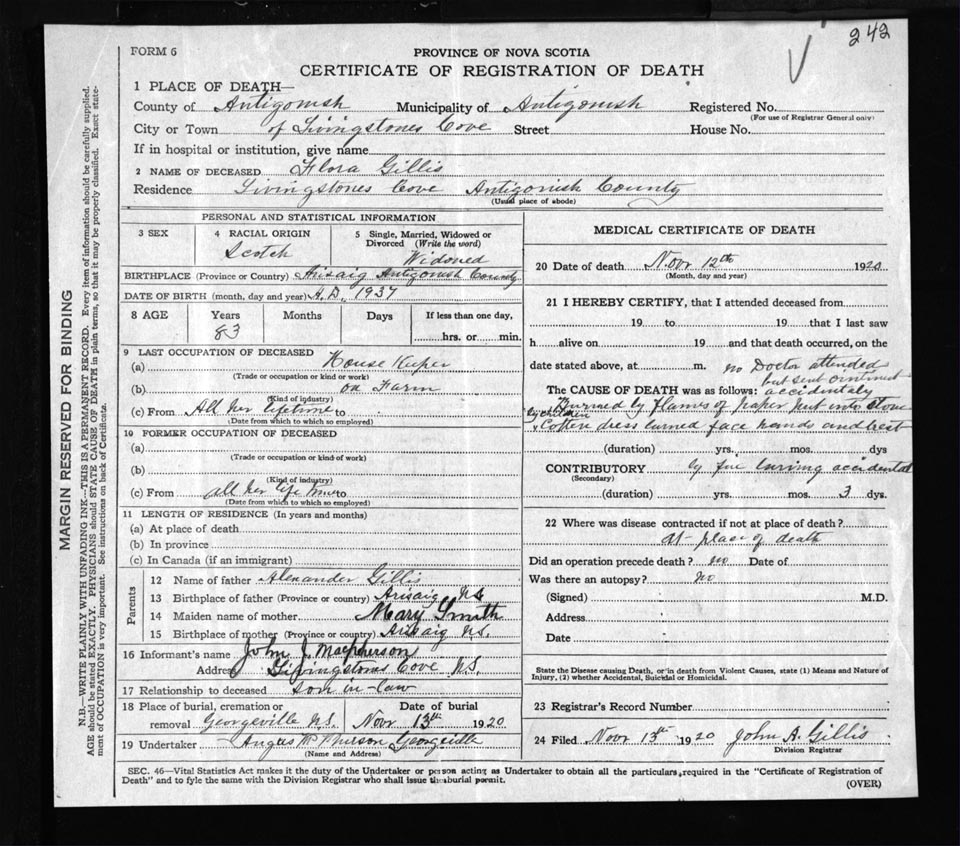 242
FORM 6
PROVINCE OF NOVA SCOTIA
CERTIFICATE OF REGISTRATION OF DEATH
1 PLACE OF DEATH—
County of Antigonish Municipality of Antigonish Registered No.
(For use of Registrar General only)
City or Town of Livingstones Cove Street House No.
If in hospital or institution, give name
2 NAME OF DECEASED Flora Gillis
Residence Livingstones Cove Antigonish County
(Usual place of abode)
PERSONAL AND STATISTICAL INFORMATION
3 SEX
4 RACIAL ORIGIN
Scotch
5 Single, Married, Widowed or Divorced (Write the word)
Widowed
BIRTHPLACE (Province or Country) Arisaig Antigonish County
DATE OF BIRTH (month, day and year) A.D. 1937
8 AGE Years Months Days If less than one day,
83 hrs. or min.
9 LAST OCCUPATION OF DECEASED
(a) House Keeper
(Trade or occupation or kind or work)
(b) on Farm
(Kind of industry)
(c) From All her lifetime to
(Date from which to which so employed)
10 FORMER OCCUPATION OF DECEASED
(a)
(Trade or occupation or kind of work)
(b)
(Kind of industry)
(c) From all her life time to
(Date from which to which so employed)
11 LENGTH OF RESIDENCE (In years and months)
(a) At place of death
(b) In province
(c) In Canada (if an immigrant)
Parents
12 Name of father Alexander Gillis
13 Birthplace of father (Province or country) Arisaig NS
14 Maiden name of mother Mary Smith
15 Birthplace of mother (Province or country) Arisaig N.S.
16 Informant's name John J. Macpherson
Address Livingstons Cove N.S.
17 Relationship to deceased son in-law
18 Place of burial, cremation or removal Georgeville N.S.
Date of burial
Nov 13th 1920
19 Undertaker Angus McPherson Georgeville
(Name and Address)
MEDICAL CERTIFICATE OF DEATH
20 Date of death Nov 12th 1920
(Month, day and year)
21 I HEREBY CERTIFY, that I attended deceased from
19 to 19 that I last saw
h alive on 19 and that death occurred, on the
date stated above, at m. no Doctor attended
but sent ointment
The CAUSE OF DEATH was as follows: accidentaly
Burned by flames of paper put into stove
by children
& Cotton dress burned face hands and brest
(duration) yrs. mos. dys
CONTRIBUTORY by fire burning accidental
(Secondary)
(duration) yrs. mos. 3 dys.
22 Where was disease contracted if not at place of death?
at place of death
Did an operation precede death? no Date of
Was there an autopsy? no
(Signed) M.D.
Address
Date
State the Disease causing Death, or in death from Violent Causes, state (1) Means and Nature of
Injury, (2) whether Accidental, Suicidal or Homicidal.
23 Registrar's Record Number
24 Filed Nov 13th 1920 John A. Gillis
Division Registrar
SEC. 46—Vital Statistics Act makes it the duty of the Undertaker or person acting as Undertaker to obtain all the particulars required in the "Certificate of Registration of
Death" and to fyle the same with the Division Registrar who shall issue the burial permit.
(OVER)
MARGIN RESERVED FOR BINDING
N.B.—WRITE PLAINLY WITH UNFADING INK—THIS IS A PERMANENT RECORD. Every item of information should be carefully supplied.
AGE should be stated EXACTLY. PHYSICIANS should STATE CAUSE OF DEATH in plain terms, so that it may be properly classified. Exact state-
ment of OCCUPATION is very important. See instructions on back of Certificate.